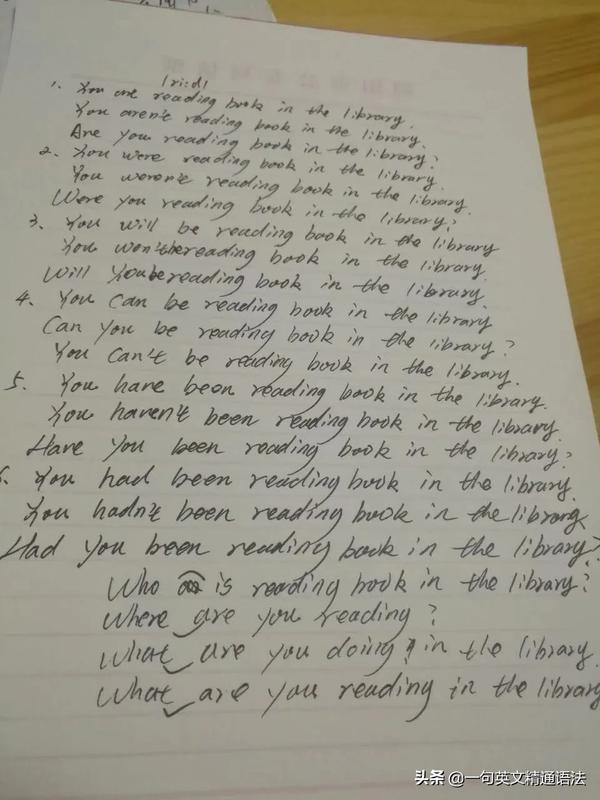 |ri:d|
1. You are reading book in the library.
You aren't reading book in the library.
Are you reading book in the library?
2. You were reading book in the library.
You weren't reading book in the library.
Were you reading book in the library?
3. You will be reading book in the library
You won't be reading book in the library.
Will You be reading book in the library.
4. You can be reading book in the library
Can you be reading book in the library?
You Can't be reading book in the library.
5. You have been reading book in the library.
You haven't been reading book in the library.
Have you been reading book in the library?
6. You had been reading book in the library.
You hadn't been reading book in the library
Had you been reading book in the library?
Who is reading book in the library?
Where are you reading?
What are you doing in the library.
What are you reading in the library
头条 @一句英文精通语法